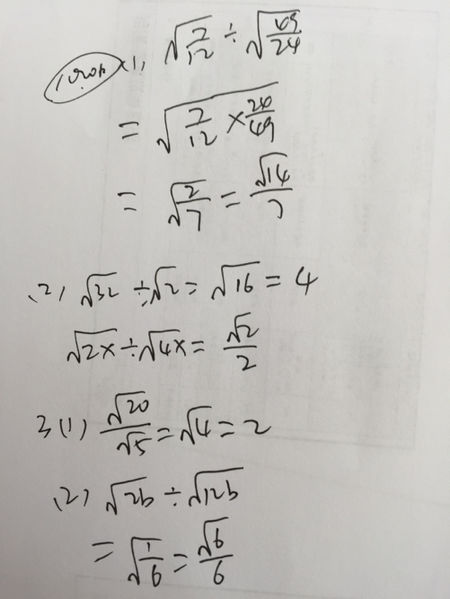 (1) √(7/12) ÷ √(49/24)
= √(7/12 × 24/49)
= √(2/7) = √14/7
(2) √32 ÷ √2 = √16 = 4
√2x ÷ √4x = √2/2
3(1) √20/√5 = √4 = 2
(2) √2b ÷ √12b
= √(1/6) = √6/6